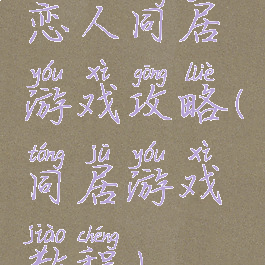 恋人同居
yóu xì gōng lüè
游戏攻略(
tóng jū yóu xì
同居游戏
jiào chéng
教程)